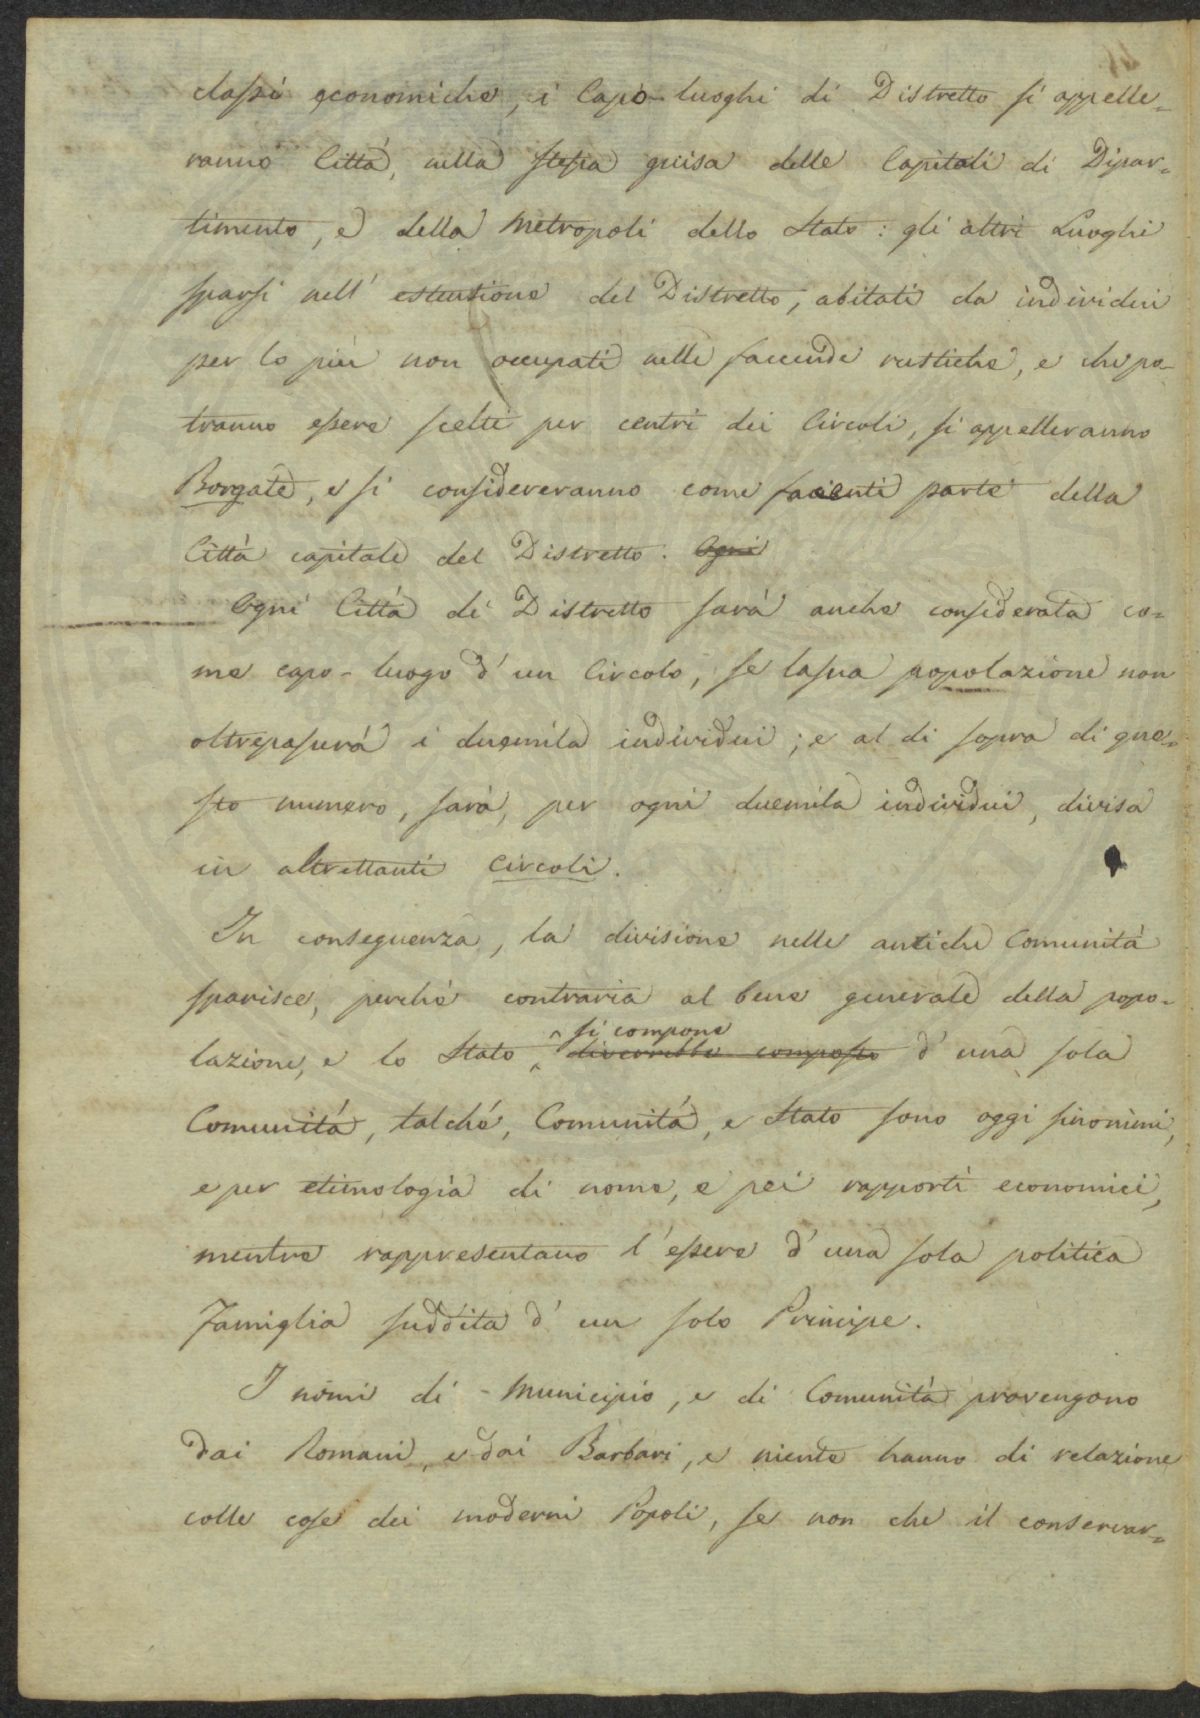 classi economiche, i Capo-luoghi di Distretto si appelle=
ranno Città, nella stessa guisa delle Capitali di Dipar=
timento, e della Metropoli dello Stato: gli altri Luoghi
sparsi nell' estensione del Distretto, abitati da individui
per lo più non occupati nelle faccende rustiche, e che po=
tranno essere scelti per centri dei Circoli, si appelleranno
Borgate, e si considereranno come facienti parte della
Città capitale del Distretto. Ogni
Ogni Città di Distretto sarà anche considerata co=
me capo-luogo d'un Circolo, se la sua popolazione non
oltrepasserà i duemila individui; e al di sopra di que=
sto numero, sarà, per ogni duemila individui, divisa
in altrettanti circoli.
In conseguenza, la divisione nelle antiche Comunità
sparisce, perché contraria al bene generale della popo=
si compone
lazione, e lo Stato, diverrebbe composto d'una sola
Comunità, talché, Comunità, e Stato sono oggi sinonimi,
e per etimologia di nome, e pei rapporti economici,
mentre rappresentano l'essere d'una sola politica
Famiglia suddita d'un solo Principe.
I nomi di Municipio, e di Comunità provengono
dai Romani, e dai Barbari, e niente hanno di relazione
colle cose dei moderni Popoli, se non che il conservar=